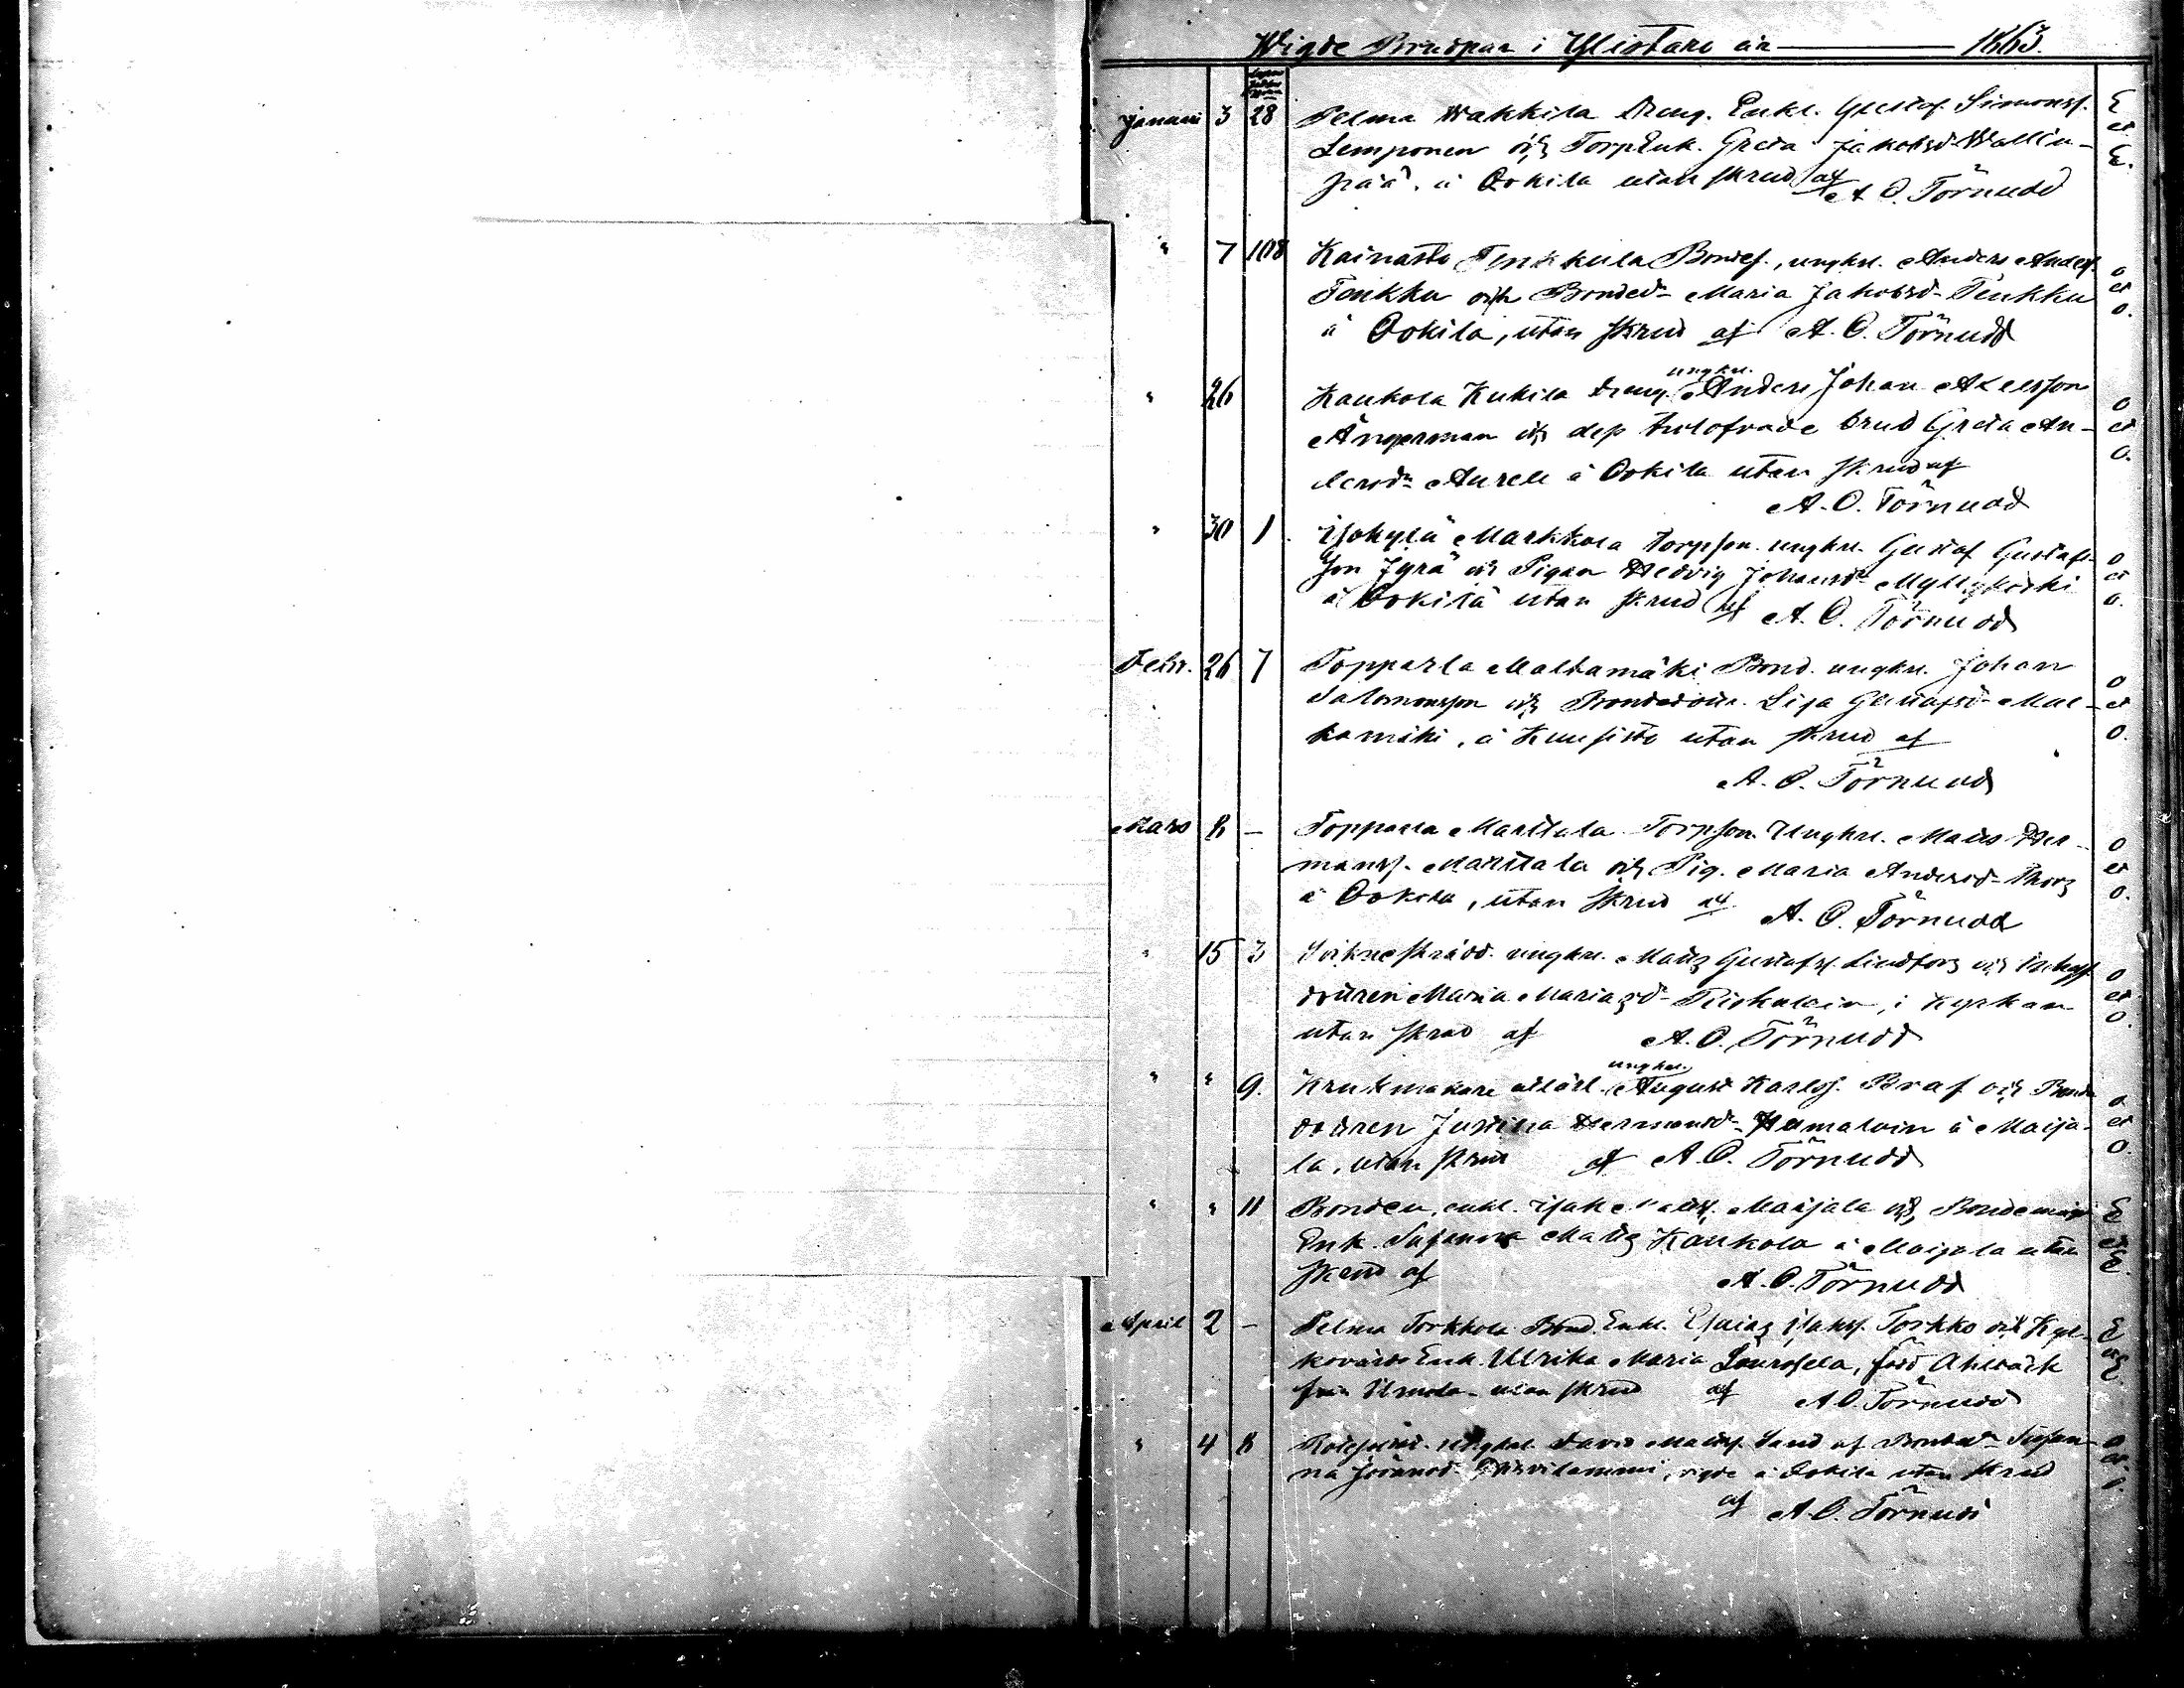 Wigde Brudpar i Ylistaro år 1865.
Januari 3 28 Pelma Wakkila Dräng. Enkl. Gustaf Simonss. E
Lemponen och TorpEnk. Greta Jakobsd. Wallin- et
pää, å Ookila utan skrud af A O. Törnudd E.
" 7 108 Kainasto Tenkkula Bondes., ungkrl. Anders Anders. o
Tenkku och Bonded. Maria Jakobsd. Tenkku et
å Ookila, utan skrud af A. O. Törnudd o.
ungkrl.
" 26 Kaukola Kukila Dräng. Anders Johan Axelsson o
Ångerman och dess trolofvade brud Greta An- et
dersd. Aurell å Ookila utan skrud af o.
A. O. Törnudd
" 30 1 Isokylä Markkola torpson. ungkrl. Gustaf Gustafs- o
son Jyrä och Pigan Hedvig Johansd. Myllykoski et
å Ookila utan skrud af A. O. Törnudd o.
Febr. 26 7 Topparla Maltamäki Bond. ungkrl. Johan o
Salomonsson och Bondedottr. Lisa Gustafsd. Mal- et
kamäki, å Kuusisto utan skrud af o.
A. O. Törnudd
Mars 8 — Topparla Marttala Torpson. Ungkrl. Matts Her- o
manss. Marttala och Pig. Maria Andersd. Thors et
å Ookila, utan skrud af A. O. Törnudd o.
" 15 3 Sockneskrädd. ungkrl. Matts Gustafss. Lindfors och o
dottren Maria Mariasd. i Kyrkan et
utan skrud af A. O. Törnudd o.
ungkrl.
" " 9. Krukmakare August Karlss. Braf och Bonde o
dottren Justina Hermansd. Hamaloin å Maija- et
la, utan skrud af A. O. Törnudd o.
" " 11 Bonden, enkl. Isak Matss. Maijala och Bonde E
Enk. Susanna Matts Kaukola å Maijala utan et
skrud af A. O. Törnudd E.
April 2 — Pelma Torkkola Bond. Enkl. Esaias Isakss. Torkko och E
Enk. Ulrika Maria född Ahlbäck et
från utan skrud af A O. Törnudd E.
" 4 8 ungkrl. David Matss. Sand af Bonded. Susan- o
na vigde å Ookila utan skrud et
af A. O. Törnudd o.